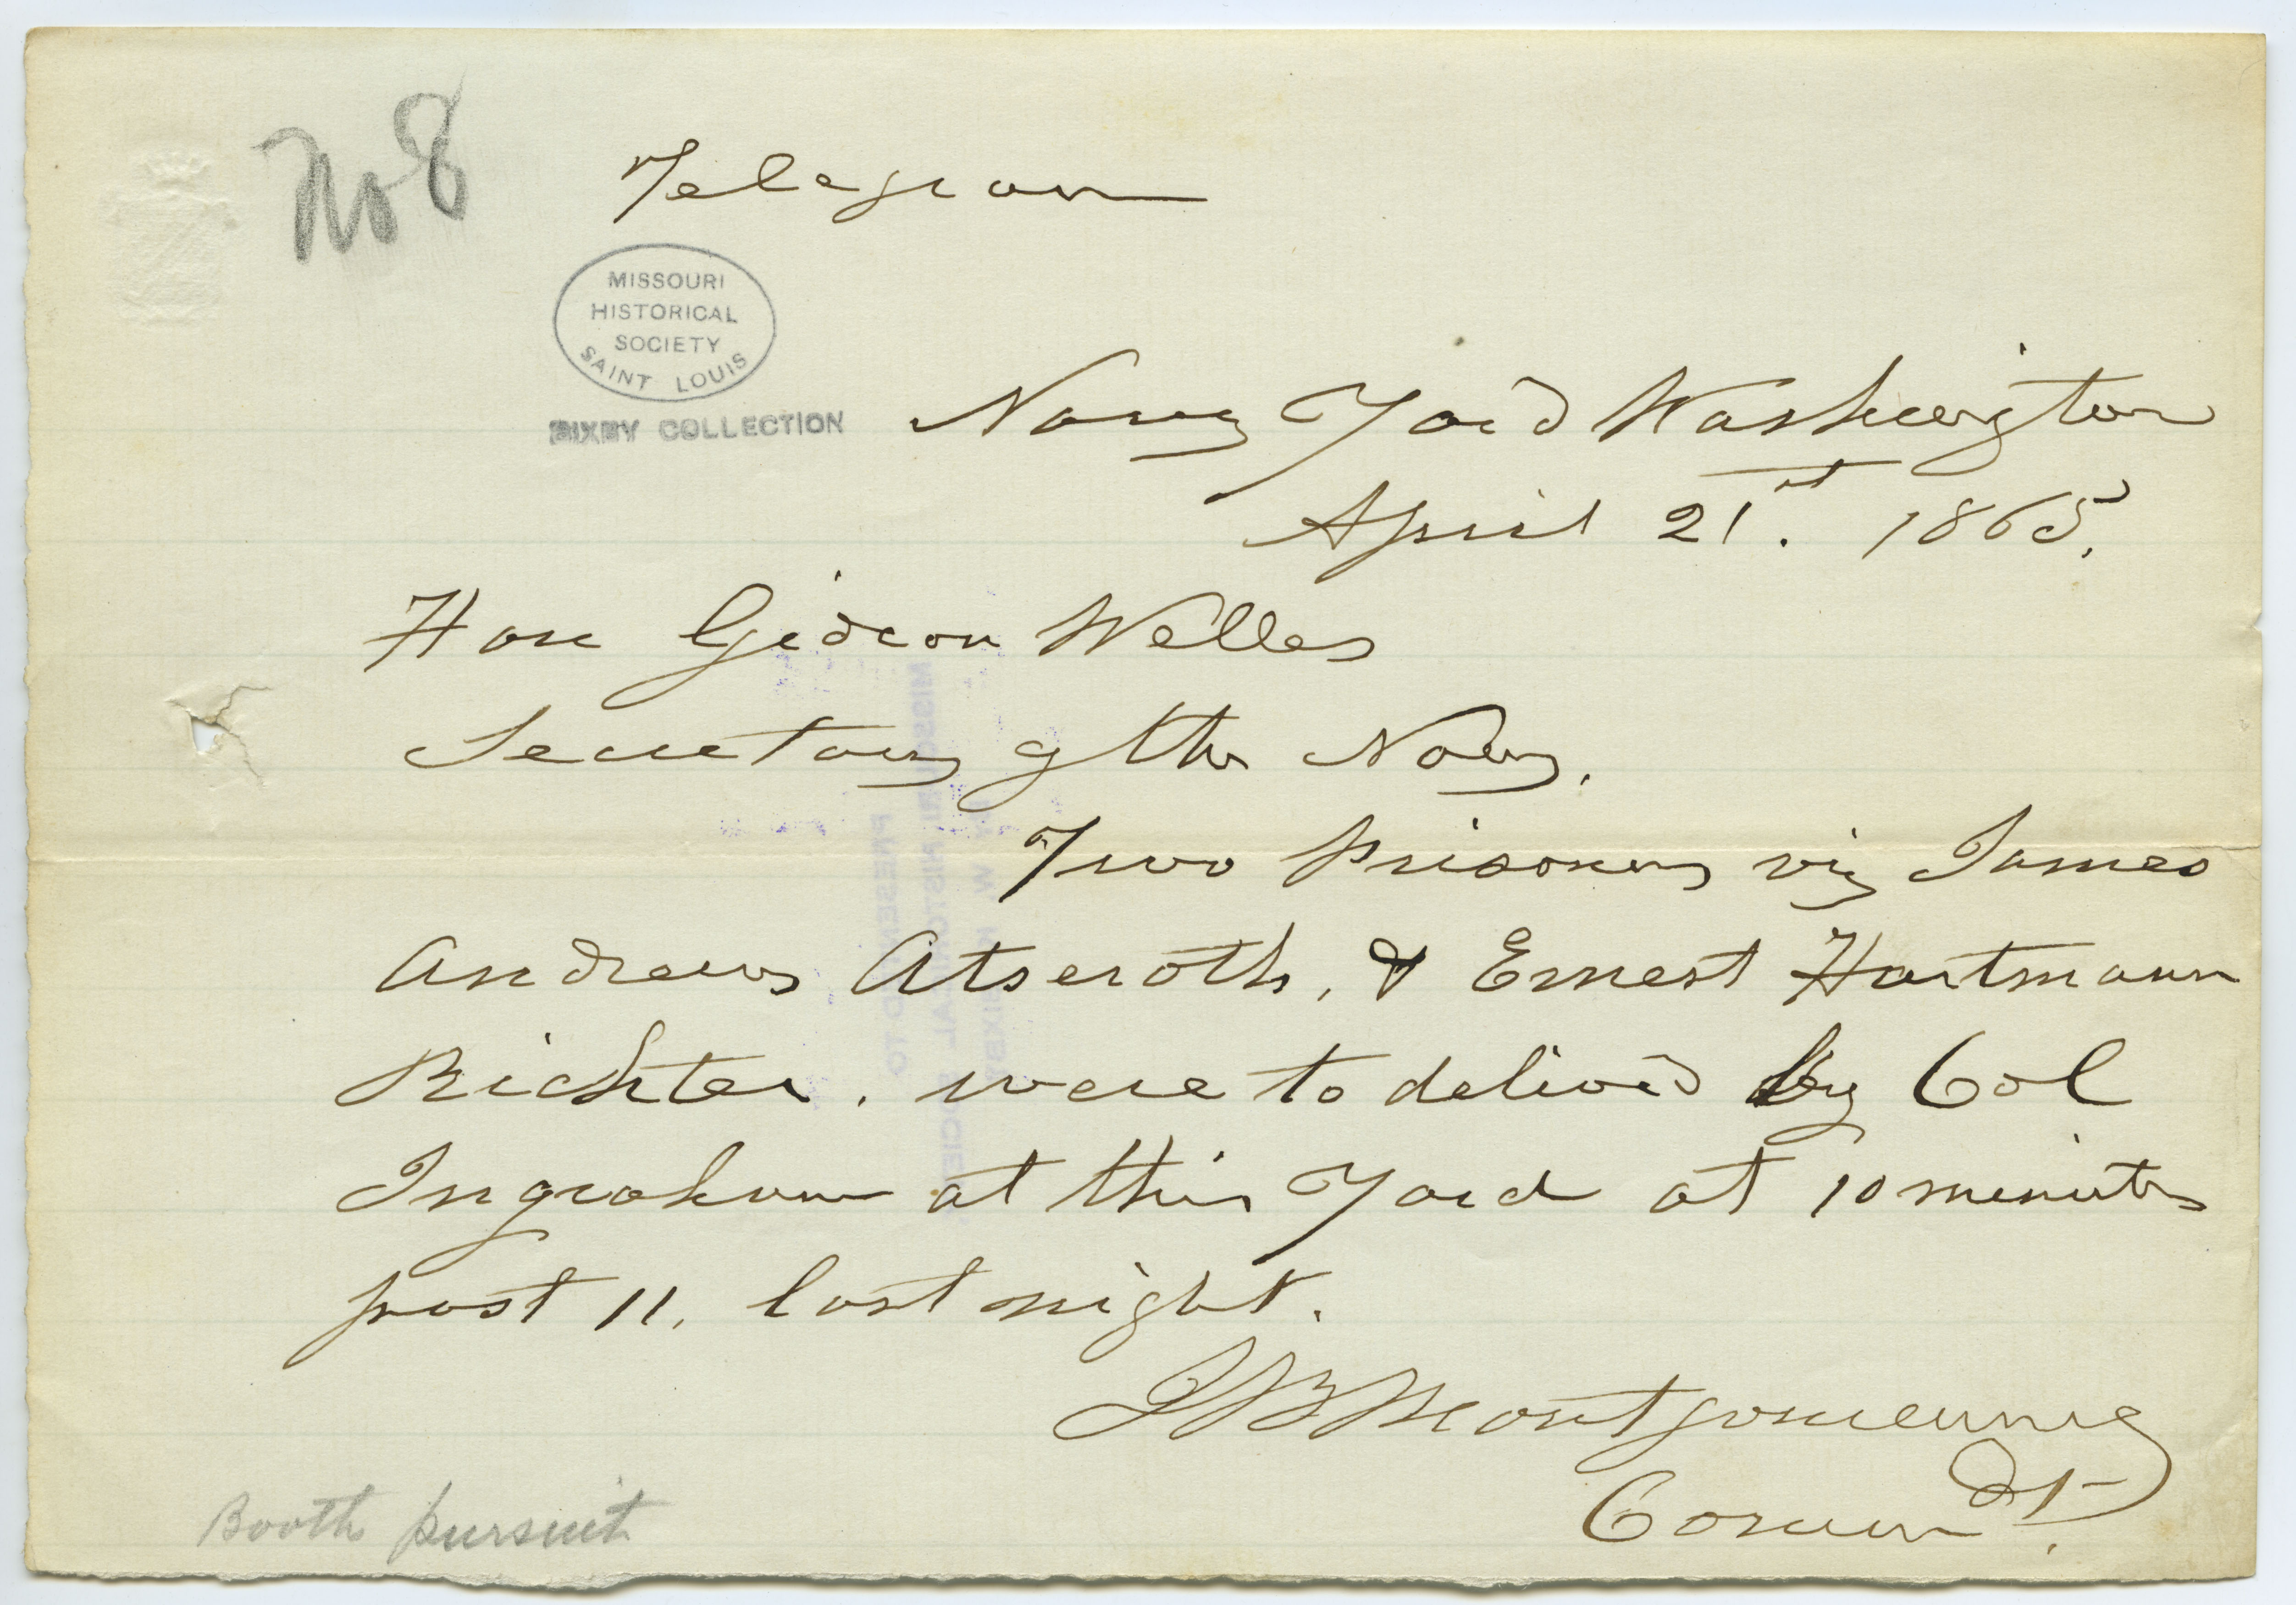 No 8
Telegram
MISSOURI
HISTORICAL
SOCIETY
SAINT LOUIS
BIXBY COLLECTION
Navy Yard Washington
April 21st. 1865.
Hon Gideon Welles
Secretary of the Navy.
Two Prisoners viz James
Andrews Atseroth, & Ernest Hartmann
Richter. were to deliverd by Col
Ingraham at this Yard at 10 minutes
past 11. last night.
J B Montgomery
Comm dt.
Booth pursuit
PRESENTED TO
MISSOURI HISTORICAL SOCIETY
BY W K BIXBY